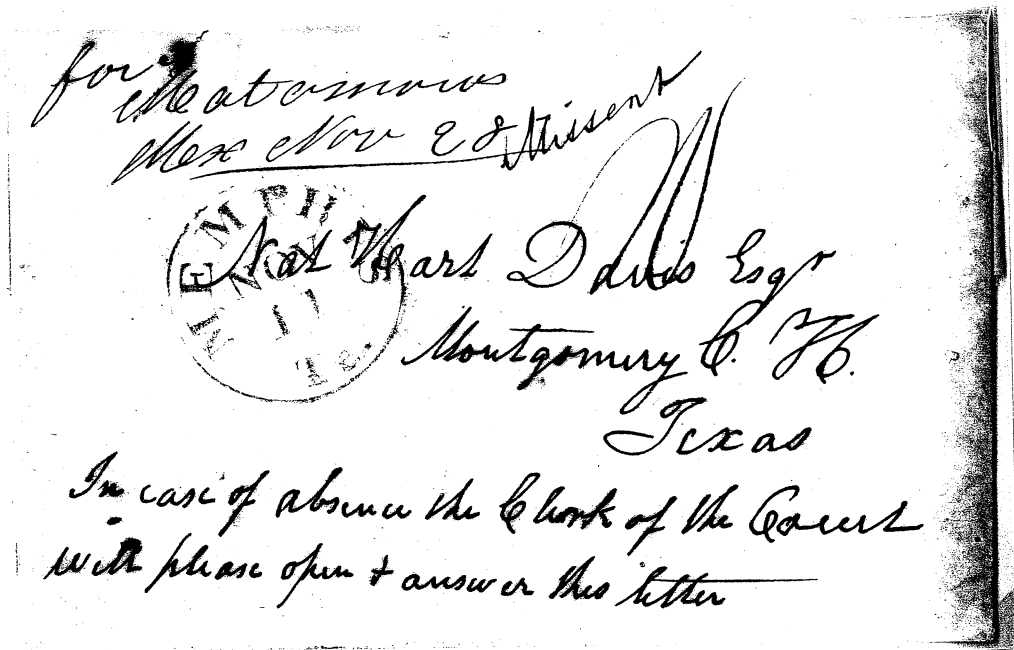 for
Matamoros
Mex Nov 28 Missent
MEMPHIS
NOV
11
Te.
Nat Hart Davis Esqr
Montgomery C. H.
Texas
In case of absence the Clerk of the Court
will please open + answer this letter